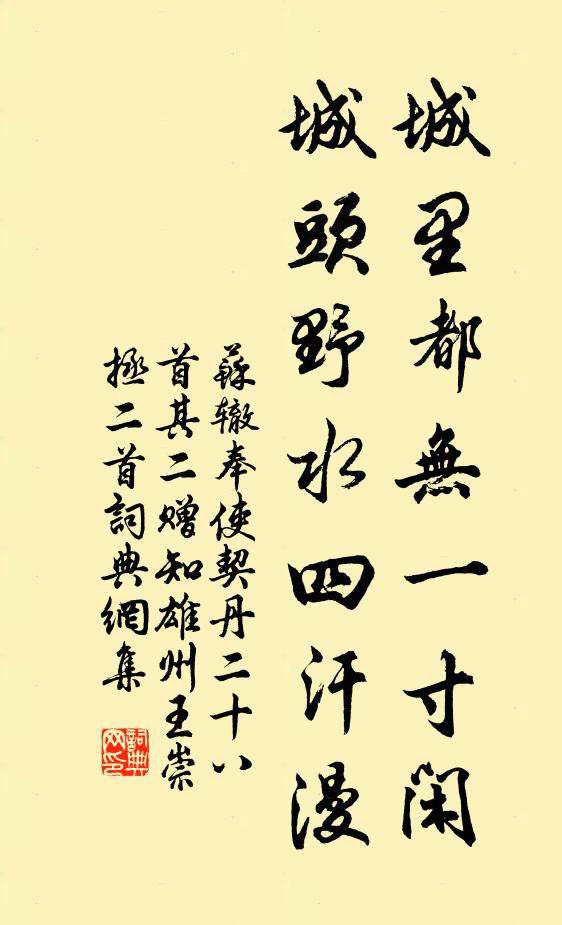 城里都無一寸闲
城頭野水四汗漫
蘇辙奉使契丹二十八
首其二赠知雄州王崇
拯二首詞典網集
詞典网印